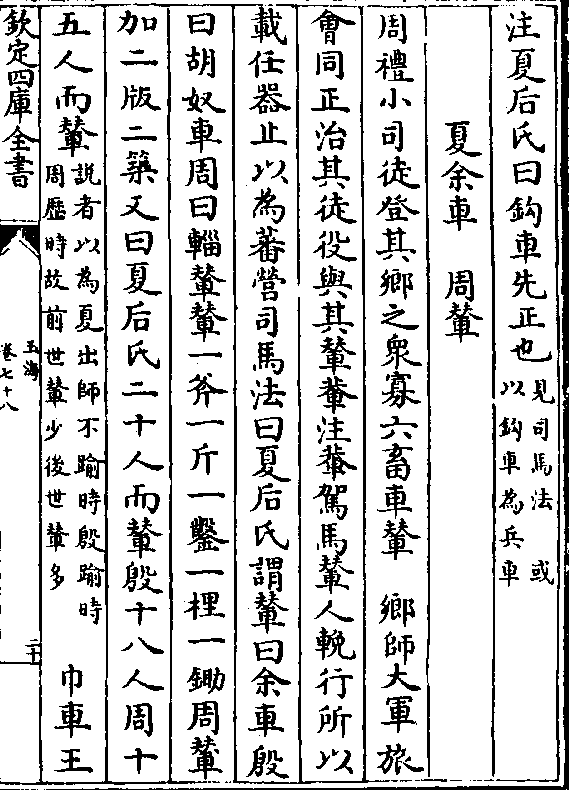 注夏后氏曰鈎車先正也見司馬法或
以鈎車為兵車
夏余車　周輦
周禮小司徒登其鄉之衆寡六畜車輦　鄉師大軍旅
會同正治其徒役與其輂輦注輂駕馬輦人輓行所以
載任器止以為蕃營司馬法曰夏后氏謂輦曰余車殷
曰胡奴車周曰輜輦輦一斧一斤一鑿一梩一鋤周輦
加二版二築又曰夏后氏二十人而輦殷十八人周十
五人而輦說者以為夏出師不踰時殷踰時
周歷時故前世輦少後世輦多　巾車王
欽定四庫全書
玉海
卷七十八
二十